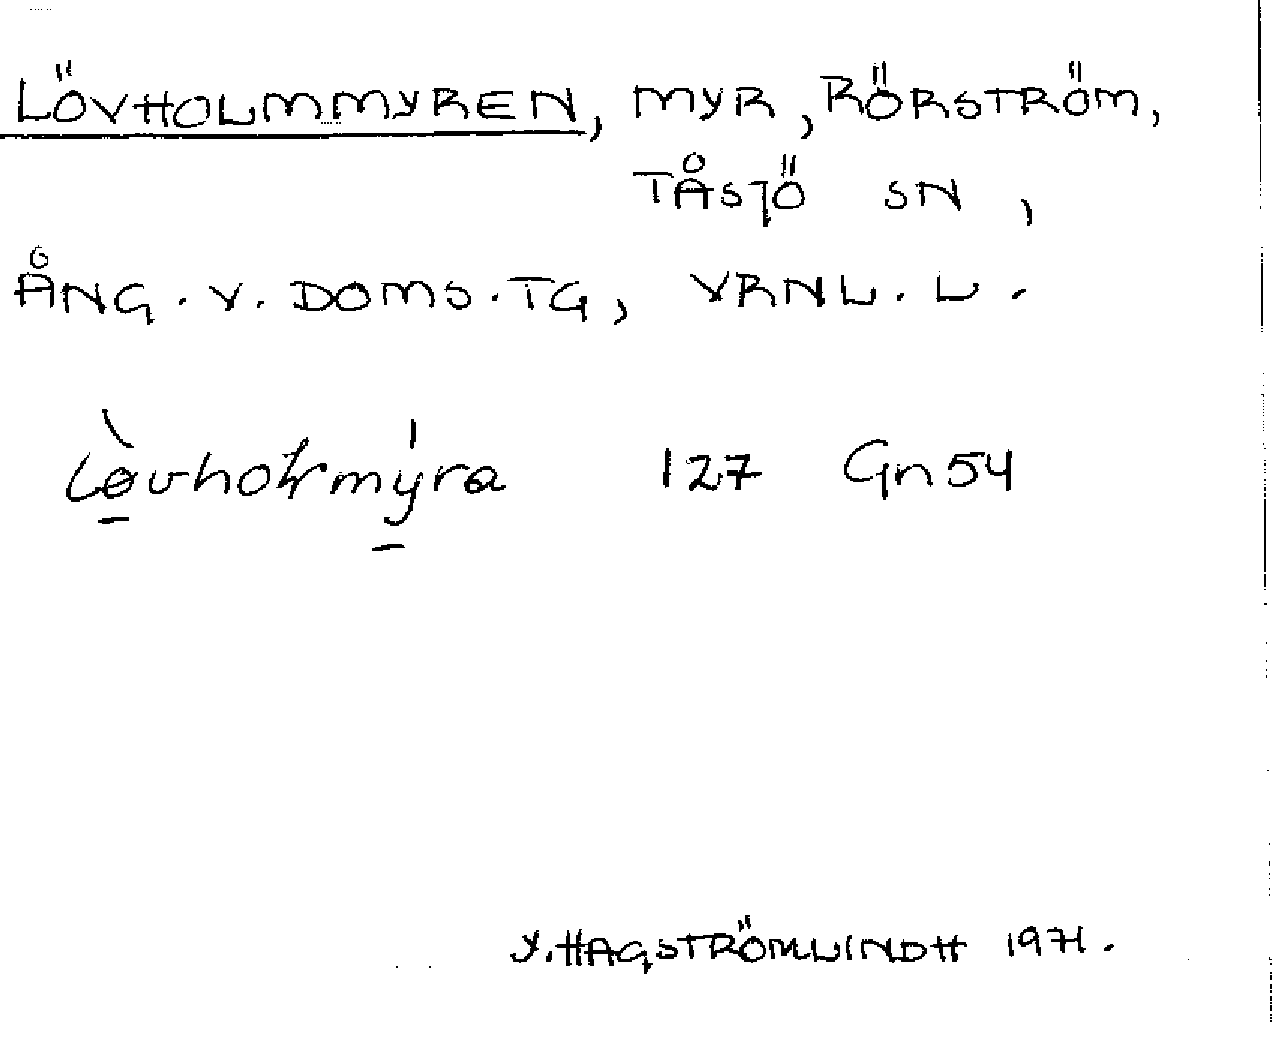 LÖVHOLMMYREN, MYR, RÖRSTRÖM,
TÅSJÖ SN,
ÅNG. V. DOMS. TG, VRNL. L.
127 Gn54
Y. HAGSTRÖMLINDH 1971.